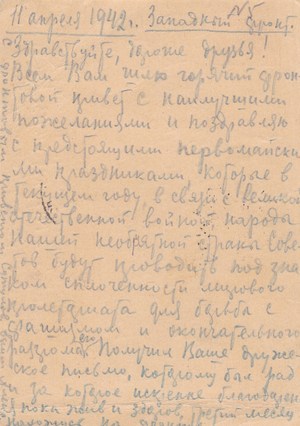 11 апреля 1942 г. Западный фронт.
Здравствуйте, дорогие друзья!
Всем Вам шлю горячий фрон-
товой привет с наилучшими
пожеланиями и поздравляю
с предстоящими первомайски-
ми праздниками, которые в
текущем году в связи с великой
отечественной войной народы
нашей необъятной страны Сове-
тов будут проводить под зна-
ком сплоченности мирового
пролетариата для борьбы с
фашизмом и окончательного
разгрома его. Получил Ваше друже-
ское письмо, которому был рад
и за которое искренне благодарен
Я пока жив и здоров, третий месяц
нахожусь на